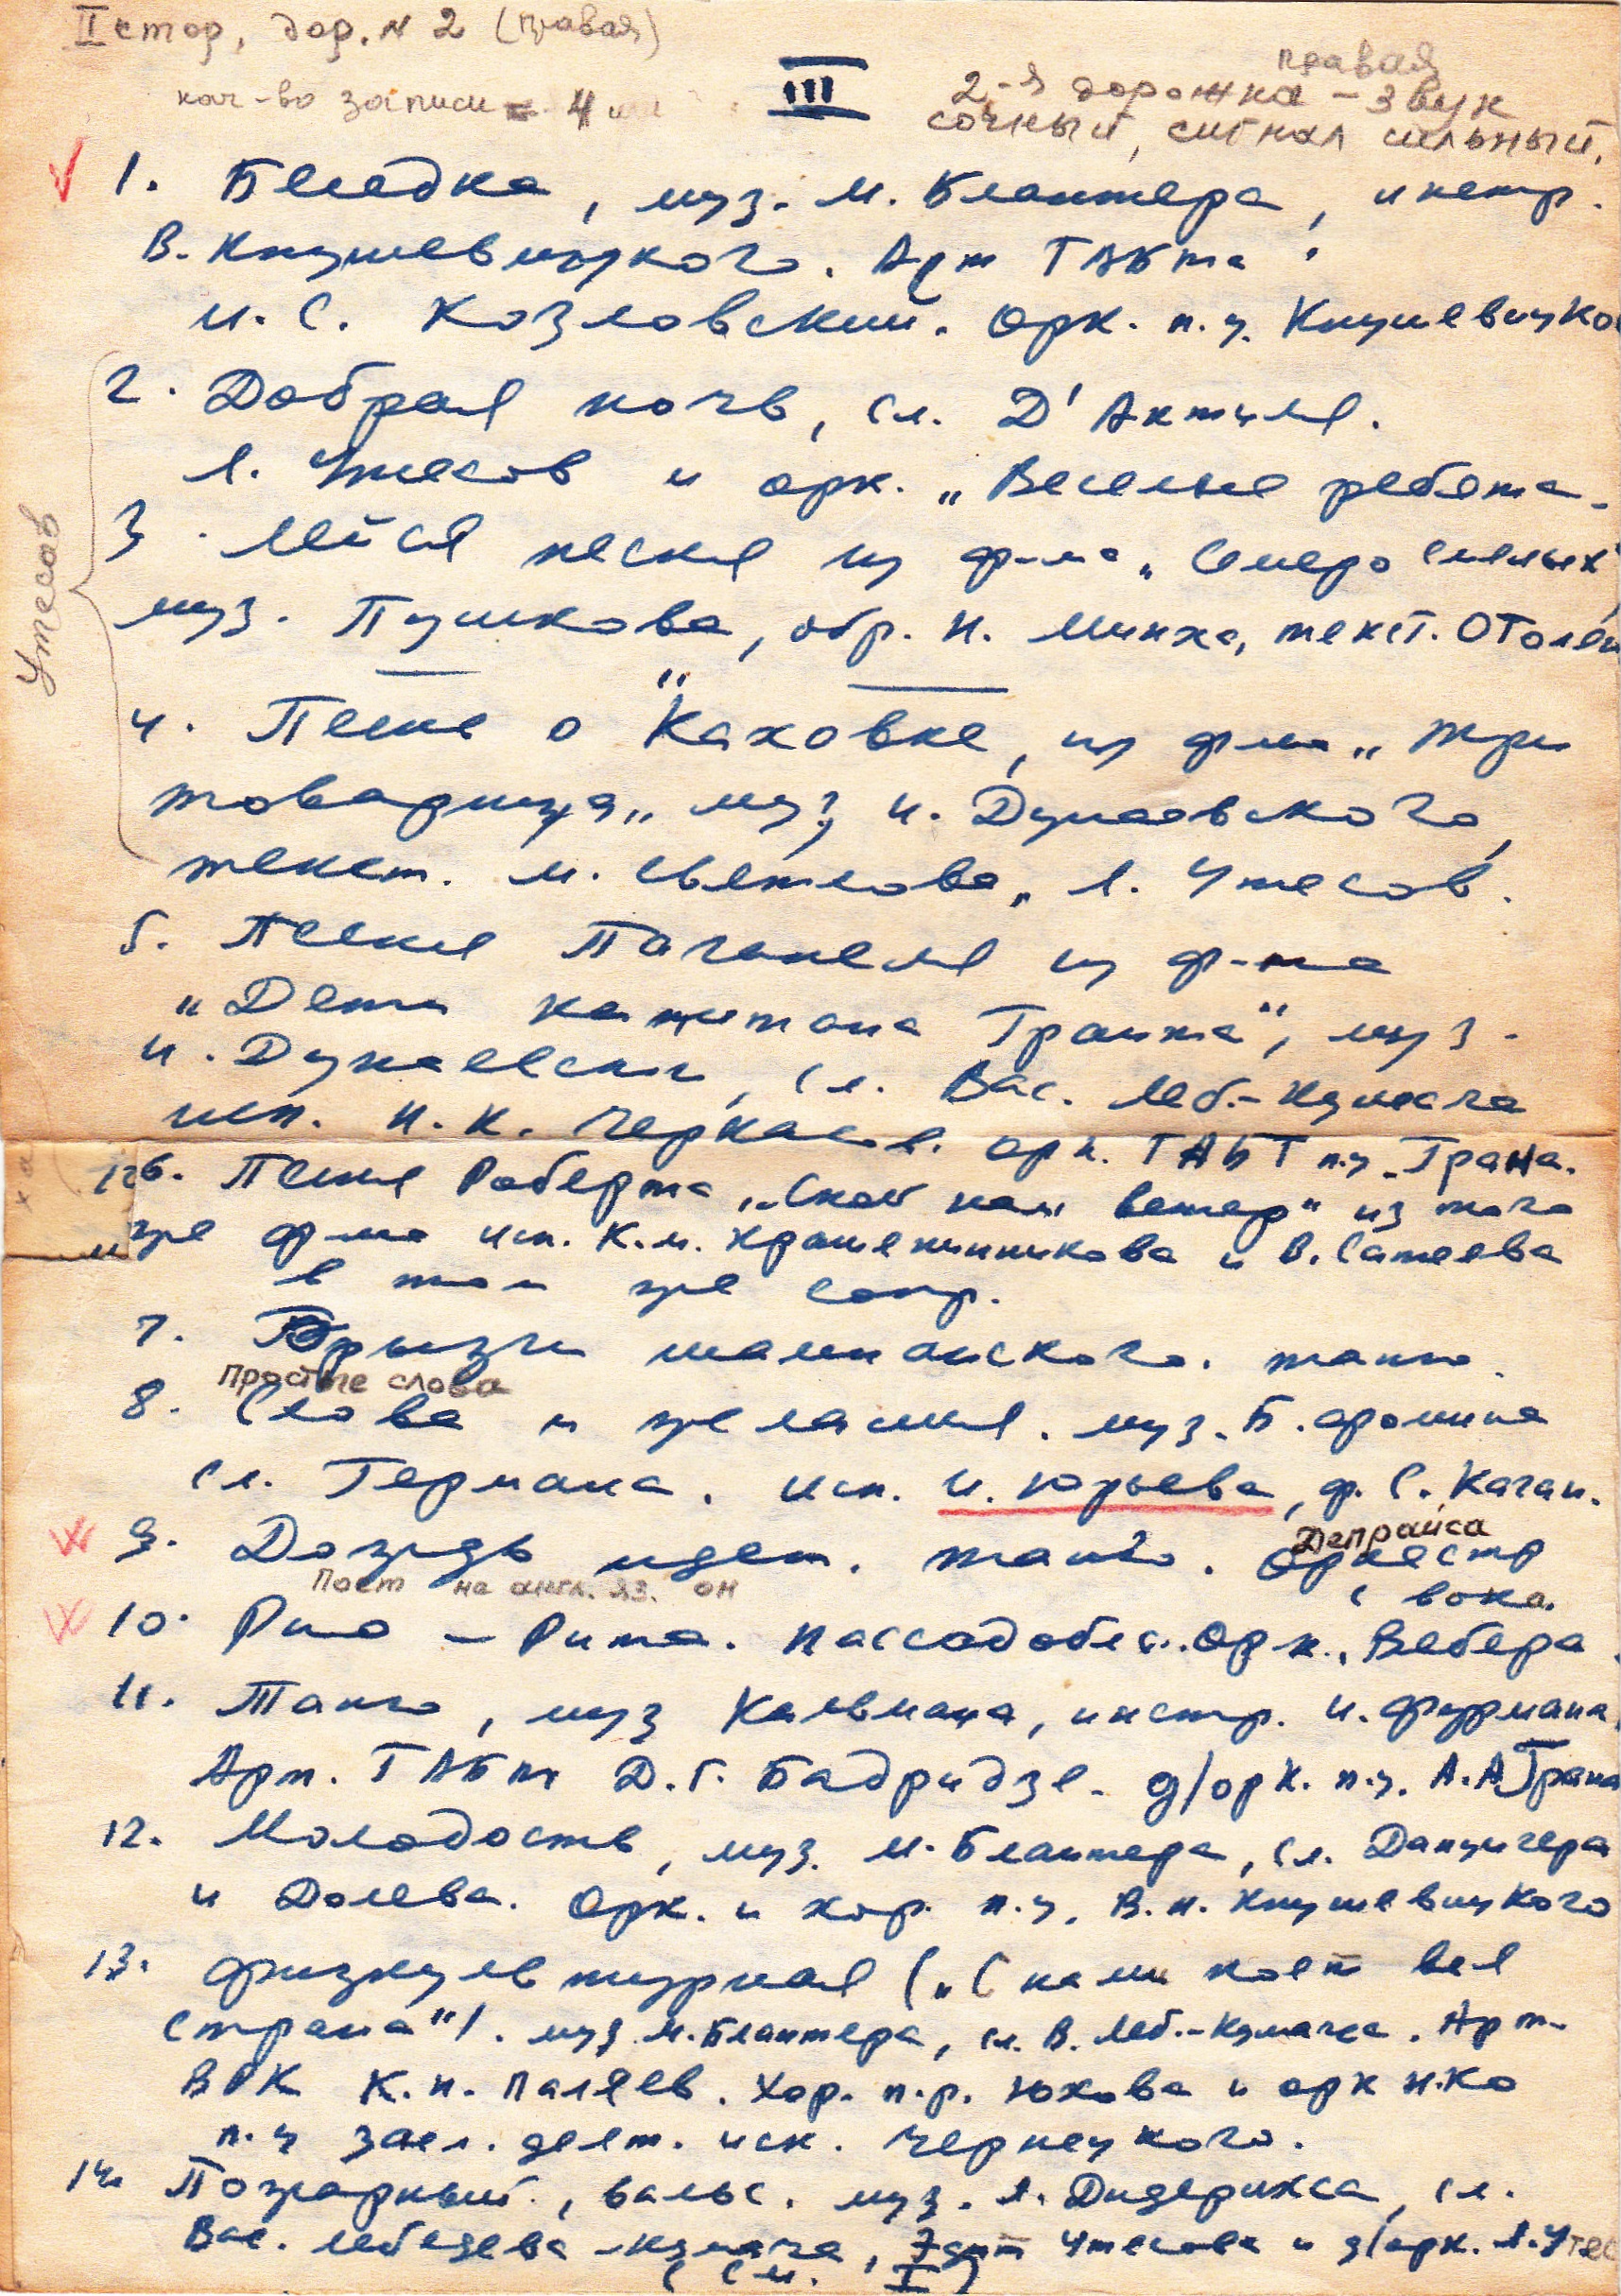 II стор, дор. N 2 (правая)
кач-во записи = 4
III
правая
2-я дорожка – звук
сочный, сигнал сильный.
1. Беседка, муз. М. Блантера, инстр.
В. Кнушевицкого. Арт ГАБТа
И. С. Козловский. Орк. п.у. Кнушевицко
Утесов
2. Добрая ночь, сл. Д'Актиля.
Л. Утесов и орк. „Веселые ребята
3. Лейся песня из ф-ма „Семеро смелых"
муз. Пушкова, обр. Н. Минха, текст.
4. Песня о "Каховке, из ф-ма „Три
товарища„ муз И. Дунаевского,
текст. М. Светлова, Л. Утесов.
5. Песня Паганеля из ф-ма
„Дети капитана Гранта", муз.
И. Дунаевского, сл. Вас. Леб.-Кумача
исп. Н. К. Черкасов. Орк. ГАБТ п.у. Грана.
6. Песня Роберта „Спой нам ветер" из того
же ф-ма исп. К. М. Крашенинникова и В.
в том же сопр.
7. Брызги шампанского. танго.
Простые слова
8. Слова и желания. муз. Б. Фомина
сл. Германа. исп. И. Юрьева, ф. С. Каган.
Депрайса
9. Дождь идет. танго. Оркестр
Поет на англ. яз. он
с вока.
10. Рио – Рита. пассадобль. Орк. Вебера.
11. Танго, муз Кальмана, инстр. И. Фурмана.
Арт. ГАБТ Д. Г. Бадридзе. д/орк. п.у. А. А. Грана
12. Молодость, муз. М. Блантера, сл. Данцигера
и Долева. Орк. и хор. п.у. В. Н. Кнушевицкого
13. Физкультурная („С нами поет вся
страна"). муз. М. Блантера, сл. В. Леб.-Кумача. Арт.
ВРК К. Н. Паляев. Хор. п.р. Юхова и орк НКО
п.у засл. деят. иск. Чернецкого.
14. Пожарный, вальс. муз. Л. Дидерихса, сл.
Вас. Лебедева-Кумача, Эдит Утесова и д/орк. Л. Утес
(см. I)